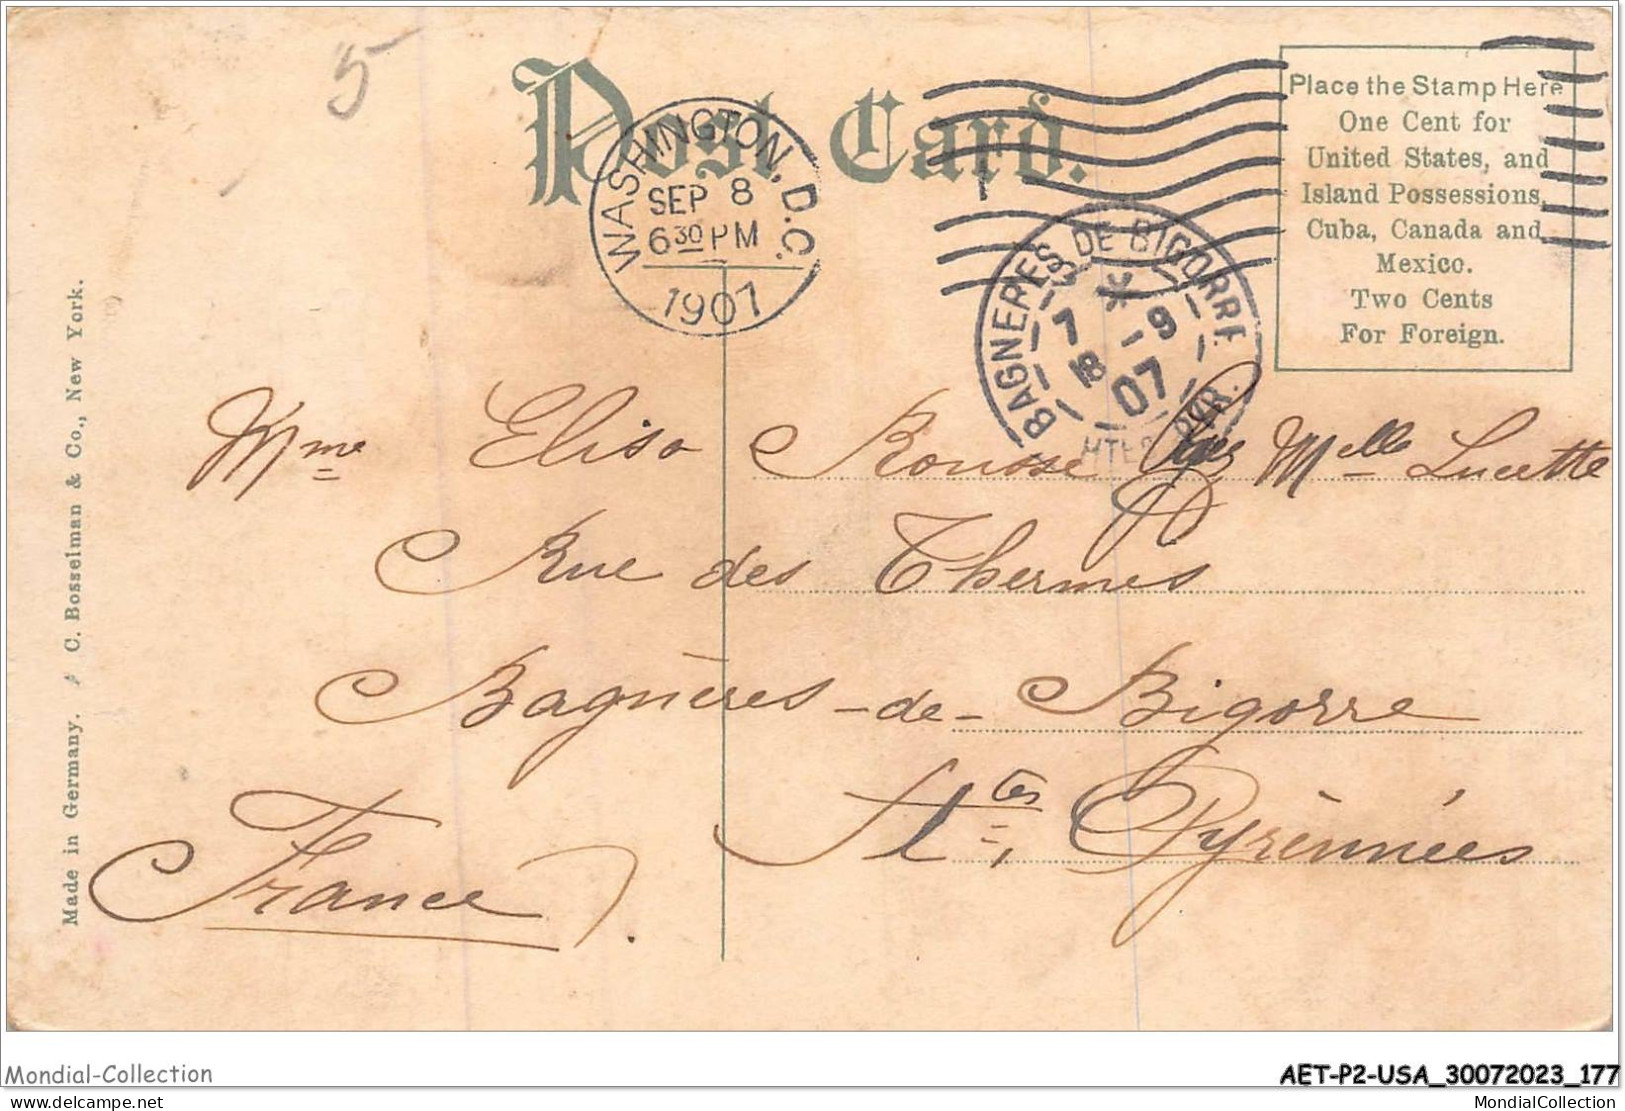 5
Post Card.
WASHINGTON, D.C.
SEP 8
6 30 PM
1907
Place the Stamp Here
One Cent for
United States, and
Island Possessions,
Cuba, Canada and
Mexico.
Two Cents
For Foreign.
BAGNERES DE BIGORRE
7 -9
18 07
HTES PYR.
Mme Elisa Rousse Melle Lucette
Rue des Thermes
Bagnères-de-Bigorre
Htes, Pyrénnées
France).
Made in Germany. C. Bosselman & Co., New York.
Mondial-Collection
AET-P2-USA_30072023_177
delcampe.net
MondialCollection